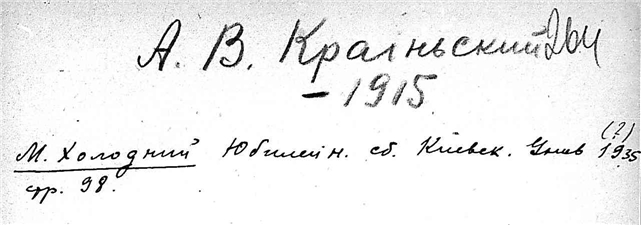 А. В. Краiньский 264
- 1915
(?)
М. Холодний Юбилейн. сб. Киевск. Унив 1935
стр. 98.